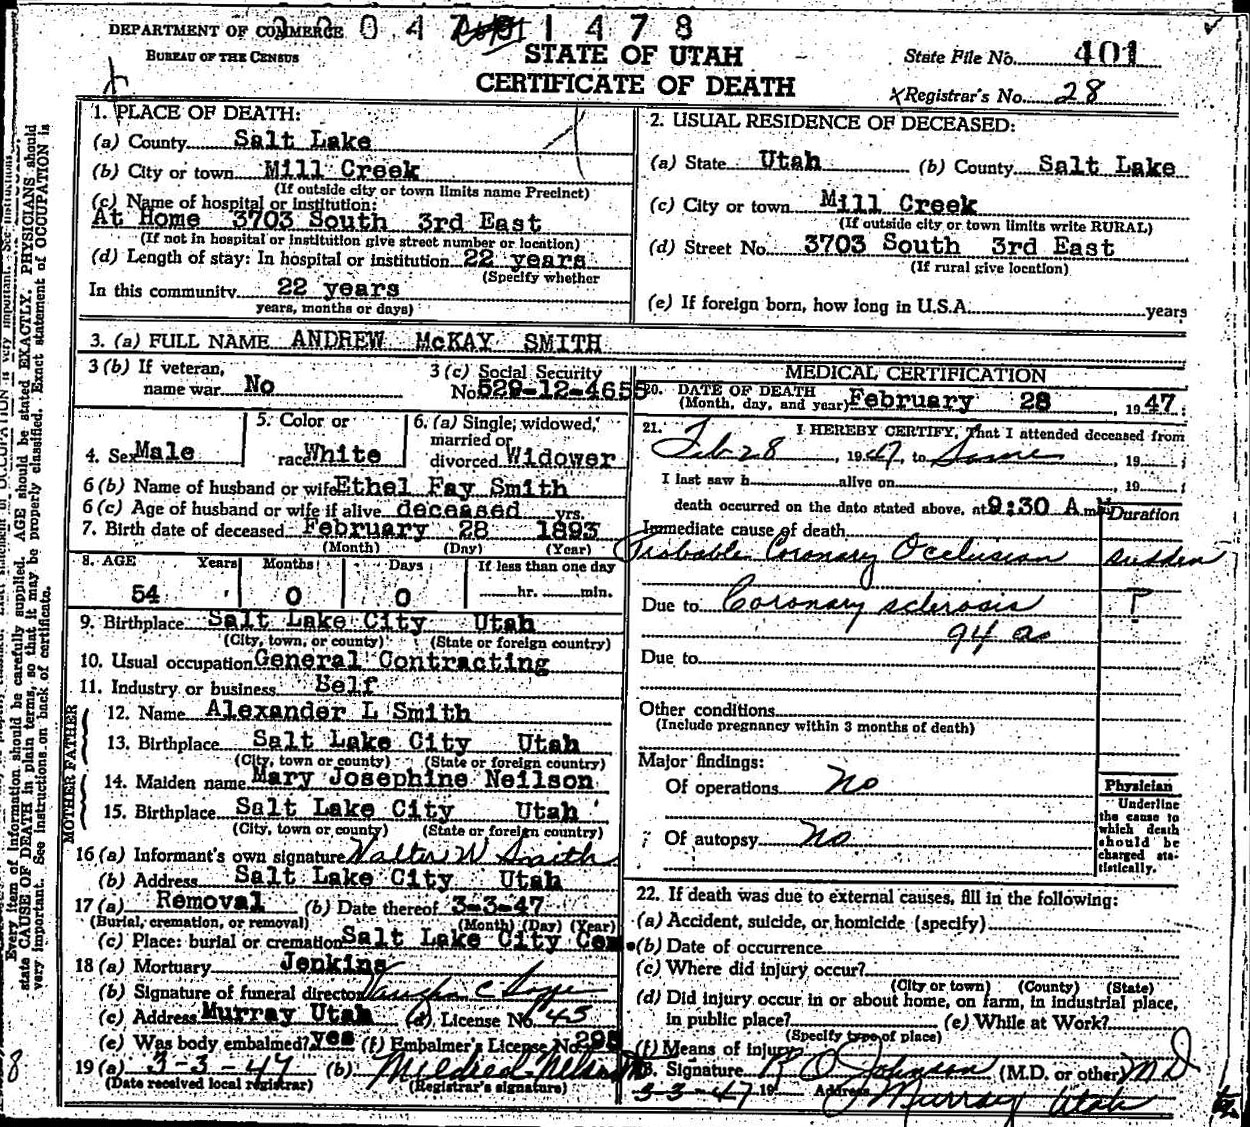 DEPARTMENT OF COMMERCE
BUREAU OF THE CENSUS
0 4 7 1 4 7 8
STATE OF UTAH
CERTIFICATE OF DEATH
State File No. 401
Registrar's No. 28
1. PLACE OF DEATH:
(a) County Salt Lake
(b) City or town Mill Creek
(If outside city or town limits name Precinct)
(c) Name of hospital or institution:
At Home 3703 South 3rd East
(If not in hospital or institution give street number or location)
(d) Length of stay: In hospital or institution 22 years
(Specify whether
In this community 22 years
years, months or days)
2. USUAL RESIDENCE OF DECEASED:
(a) State Utah (b) County Salt Lake
(c) City or town Mill Creek
(If outside city or town limits write RURAL)
(d) Street No. 3703 South 3rd East
(If rural give location)
(e) If foreign born, how long in U.S.A. years
3. (a) FULL NAME ANDREW McKAY SMITH
3 (b) If veteran,
name war No
3 (c) Social Security
No. 529-12-4655
4. Sex Male
5. Color or
race White
6. (a) Single, widowed,
married or
divorced Widower
6 (b) Name of husband or wife Ethel Fay Smith
6 (c) Age of husband or wife if alive deceased yrs.
7. Birth date of deceased February 28 1893
(Month) (Day) (Year)
8. AGE Years Months Days If less than one day
54 0 0 hr. min.
9. Birthplace Salt Lake City Utah
(City, town, or county) (State or foreign country)
10. Usual occupation General Contracting
11. Industry or business Self
FATHER
12. Name Alexander L Smith
13. Birthplace Salt Lake City Utah
(City, town or county) (State or foreign country)
MOTHER
14. Maiden name Mary Josephine Neilson
15. Birthplace Salt Lake City Utah
(City, town or county) (State or foreign country)
16 (a) Informant's own signature Walter W Smith
(b) Address Salt Lake City Utah
17 (a) Removal (b) Date thereof 3-3-47
(Burial, cremation, or removal) (Month) (Day) (Year)
(c) Place: burial or cremation Salt Lake City Cem.
18 (a) Mortuary Jenkins
(b) Signature of funeral director Vaughn C
(c) Address Murray Utah (d) License No. 45
(e) Was body embalmed? yes (f) Embalmer's License No. 295
19 (a) 3-3-47 (b) Mildred
(Date received local registrar) (Registrar's signature)
MEDICAL CERTIFICATION
20. DATE OF DEATH
(Month, day, and year) February 28, 1947
21. I HEREBY CERTIFY, That I attended deceased from
Feb 28, 1947, to Same, 19 ;
I last saw h alive on , 19 ;
death occurred on the date stated above, at 9:30 A.m.
Duration
Immediate cause of death
Probable Coronary Occlusion sudden
Due to Coronary sclerosis ?
94 a
Due to
Other conditions
(Include pregnancy within 3 months of death)
Major findings:
Of operations No
Of autopsy No
Physician
Underline
the cause to
which death
should be
charged sta-
tistically.
22. If death was due to external causes, fill in the following:
(a) Accident, suicide, or homicide (specify)
(b) Date of occurrence
(c) Where did injury occur?
(City or town) (County) (State)
(d) Did injury occur in or about home, on farm, in industrial place,
in public place? (e) While at Work?
(Specify type of place)
(f) Means of injury
23. Signature R O Johnson (M.D. or other) M D
3-3-47 19 Address Murray Utah
Every item of information should be carefully supplied. AGE should be stated EXACTLY. PHYSICIANS should
state CAUSE OF DEATH in plain terms, so that it may be properly classified. Exact statement of OCCUPATION is
very important. See instructions on back of certificate.
8